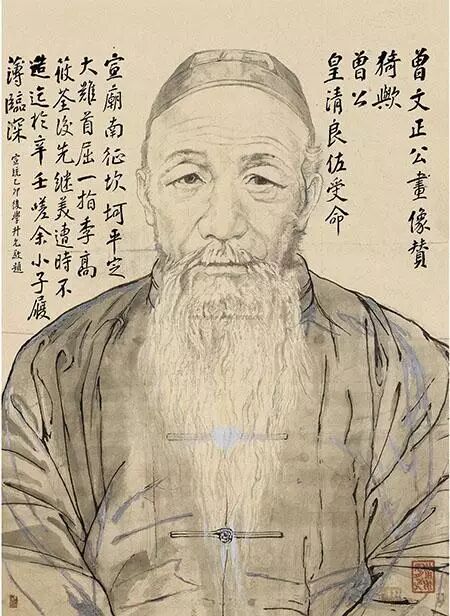 曾文正公畫像贊
猗歟
曾公
皇清良佐受命
宣廟南征坎坷平定
大難首屈一指季高
筱荃後先繼美遭時不
造迄於辛壬嗟余小子履
薄臨深
宣統乙卯後學升允敬題